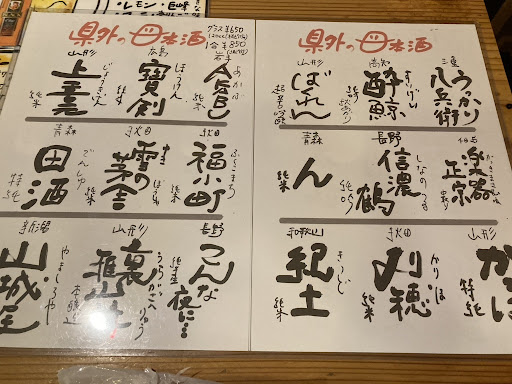 レモン・巨峰
県外の日本酒
グラス ¥650
1合 ¥850
岩手
AKABU
あかぶ
純米
広島
寶剣
ほうけん
純米
山形
上喜元
じょうきげん
純米
秋田
福小町
ふくこまち
純米
秋田
雪の茅舎
ゆきのぼうしゃ
純米
青森
田酒
でんしゅ
特純
長野
こんな夜に…
純米
山形
裏雅山流
うらががさんりゅう
本醸造
新潟
山城屋
やましろや
純米
県外の日本酒
三重
うっかり八兵衛
高知
酔鯨
すいげい
山形
ばくれん
超辛口吟醸
楽器正宗
長野
信濃鶴
しなのつる
純吟
青森
ん
純米
山形
特純
秋田
刈穂
かりほ
純米
和歌山
紀土
きっど
純米